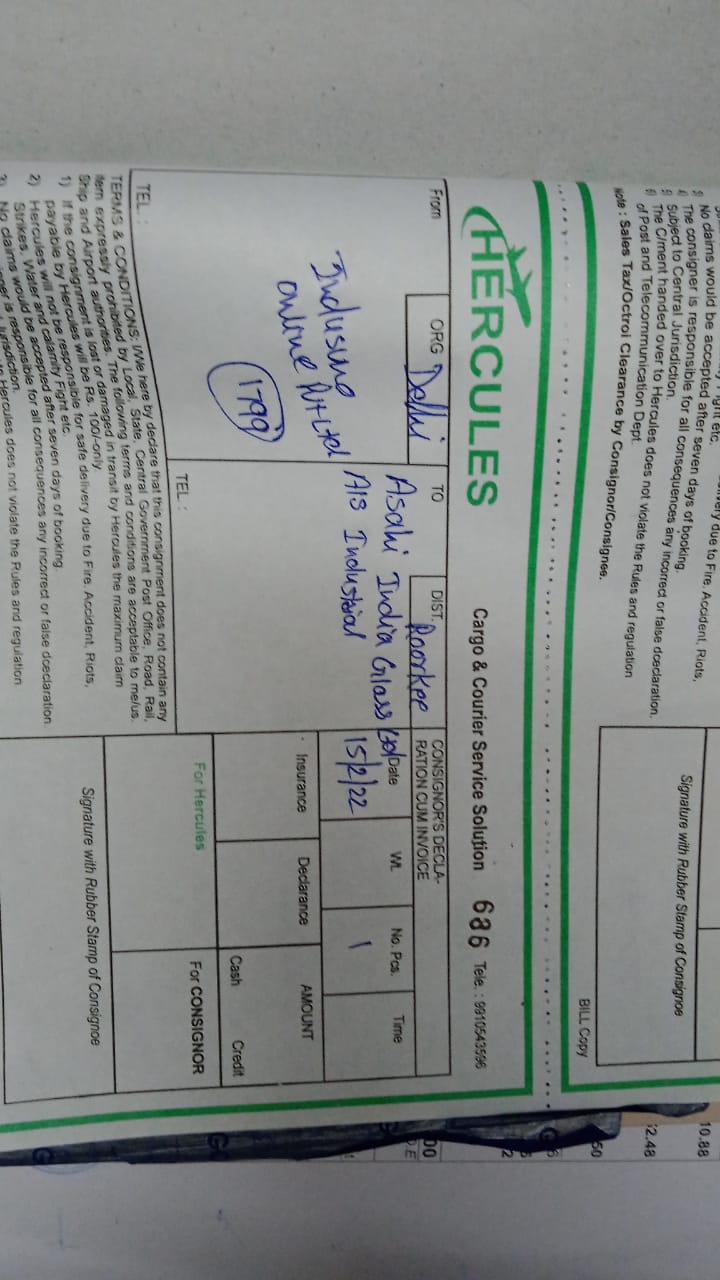 No claims would be accepted after seven days of booking.
The consigner is responsible for all consequences any incorrect or false doeclaration.
Subject to Central Jurisdiction.
The C/ment handed over to Hercules does not violate the Rules and regulation
of Post and Telecommunication Dept.
Note : Sales Tax/Octrol Clearance by Consignor/Consignee.
Signature with Rubber Stamp of Consignoe
BILL Copy
HERCULES
Cargo & Courier Service Solution 686 Tele. : 9910543596
From ORG Delhi TO DIST. Roorkee CONSIGNOR'S DECLA-
RATION CUM INVOICE
Asahi India Glass Ltd
AIS Industrial
online Pvt Ltd
1799
Date Wt. No. Pcs. Time
15/2/22 1
Insurance Declarance AMOUNT
Cash Credit
TEL :
TEL :
For Hercules For CONSIGNOR
TERMS & CONDITIONS: I/We here by declare that this consignment does not contain any
item expressly prohibited by Local, State, Central Government Post Office, Road, Rail,
Ship and Airport authorities. The following terms and conditions are acceptable to me/us.
1) If the consignment is lost or damaged in transit by Hercules the maximum claim
payable by Hercules will be Rs. 100/-only.
2) Hercules will not be responsible for safe delivery due to Fire, Accident, Riots,
Strikes, Water and calamity Fight etc.
3) No claims would be accepted after seven days of booking.
is responsible for all consequences any incorrect or false doeclaration.
Hercules does not violate the Rules and regulation
Signature with Rubber Stamp of Consignoe
10.88